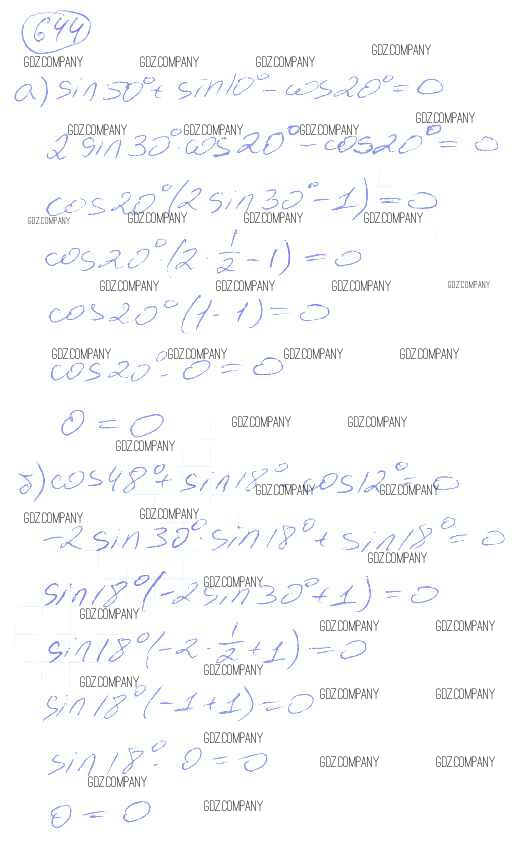 644
GDZ.COMPANY GDZ.COMPANY GDZ.COMPANY GDZ.COMPANY
а) sin50° + sin10° - cos20° = 0
GDZ.COMPANY
GDZ.COMPANY GDZ.COMPANY GDZ.COMPANY
2 sin30°·cos20° - cos20° = 0
cos20°(2 sin30° - 1) = 0
GDZ.COMPANY GDZ.COMPANY GDZ.COMPANY GDZ.COMPANY
cos20°·(2 · 1/2 - 1) = 0
GDZ.COMPANY GDZ.COMPANY GDZ.COMPANY GDZ.COMPANY
cos20°(1 - 1) = 0
GDZ.COMPANY GDZ.COMPANY GDZ.COMPANY GDZ.COMPANY
cos20° · 0 = 0
0 = 0
GDZ.COMPANY GDZ.COMPANY
GDZ.COMPANY
б) cos48° + sin18° - cos12° = 0
GDZ.COMPANY GDZ.COMPANY
GDZ.COMPANY GDZ.COMPANY
-2 sin30°·sin18° + sin18° = 0
GDZ.COMPANY
GDZ.COMPANY
sin18°(-2sin30° + 1) = 0
GDZ.COMPANY GDZ.COMPANY GDZ.COMPANY
sin18°(-2 · 1/2 + 1) = 0
GDZ.COMPANY
GDZ.COMPANY GDZ.COMPANY GDZ.COMPANY
sin18°(-1 + 1) = 0
GDZ.COMPANY
sin18° · 0 = 0
GDZ.COMPANY GDZ.COMPANY
GDZ.COMPANY
0 = 0
GDZ.COMPANY